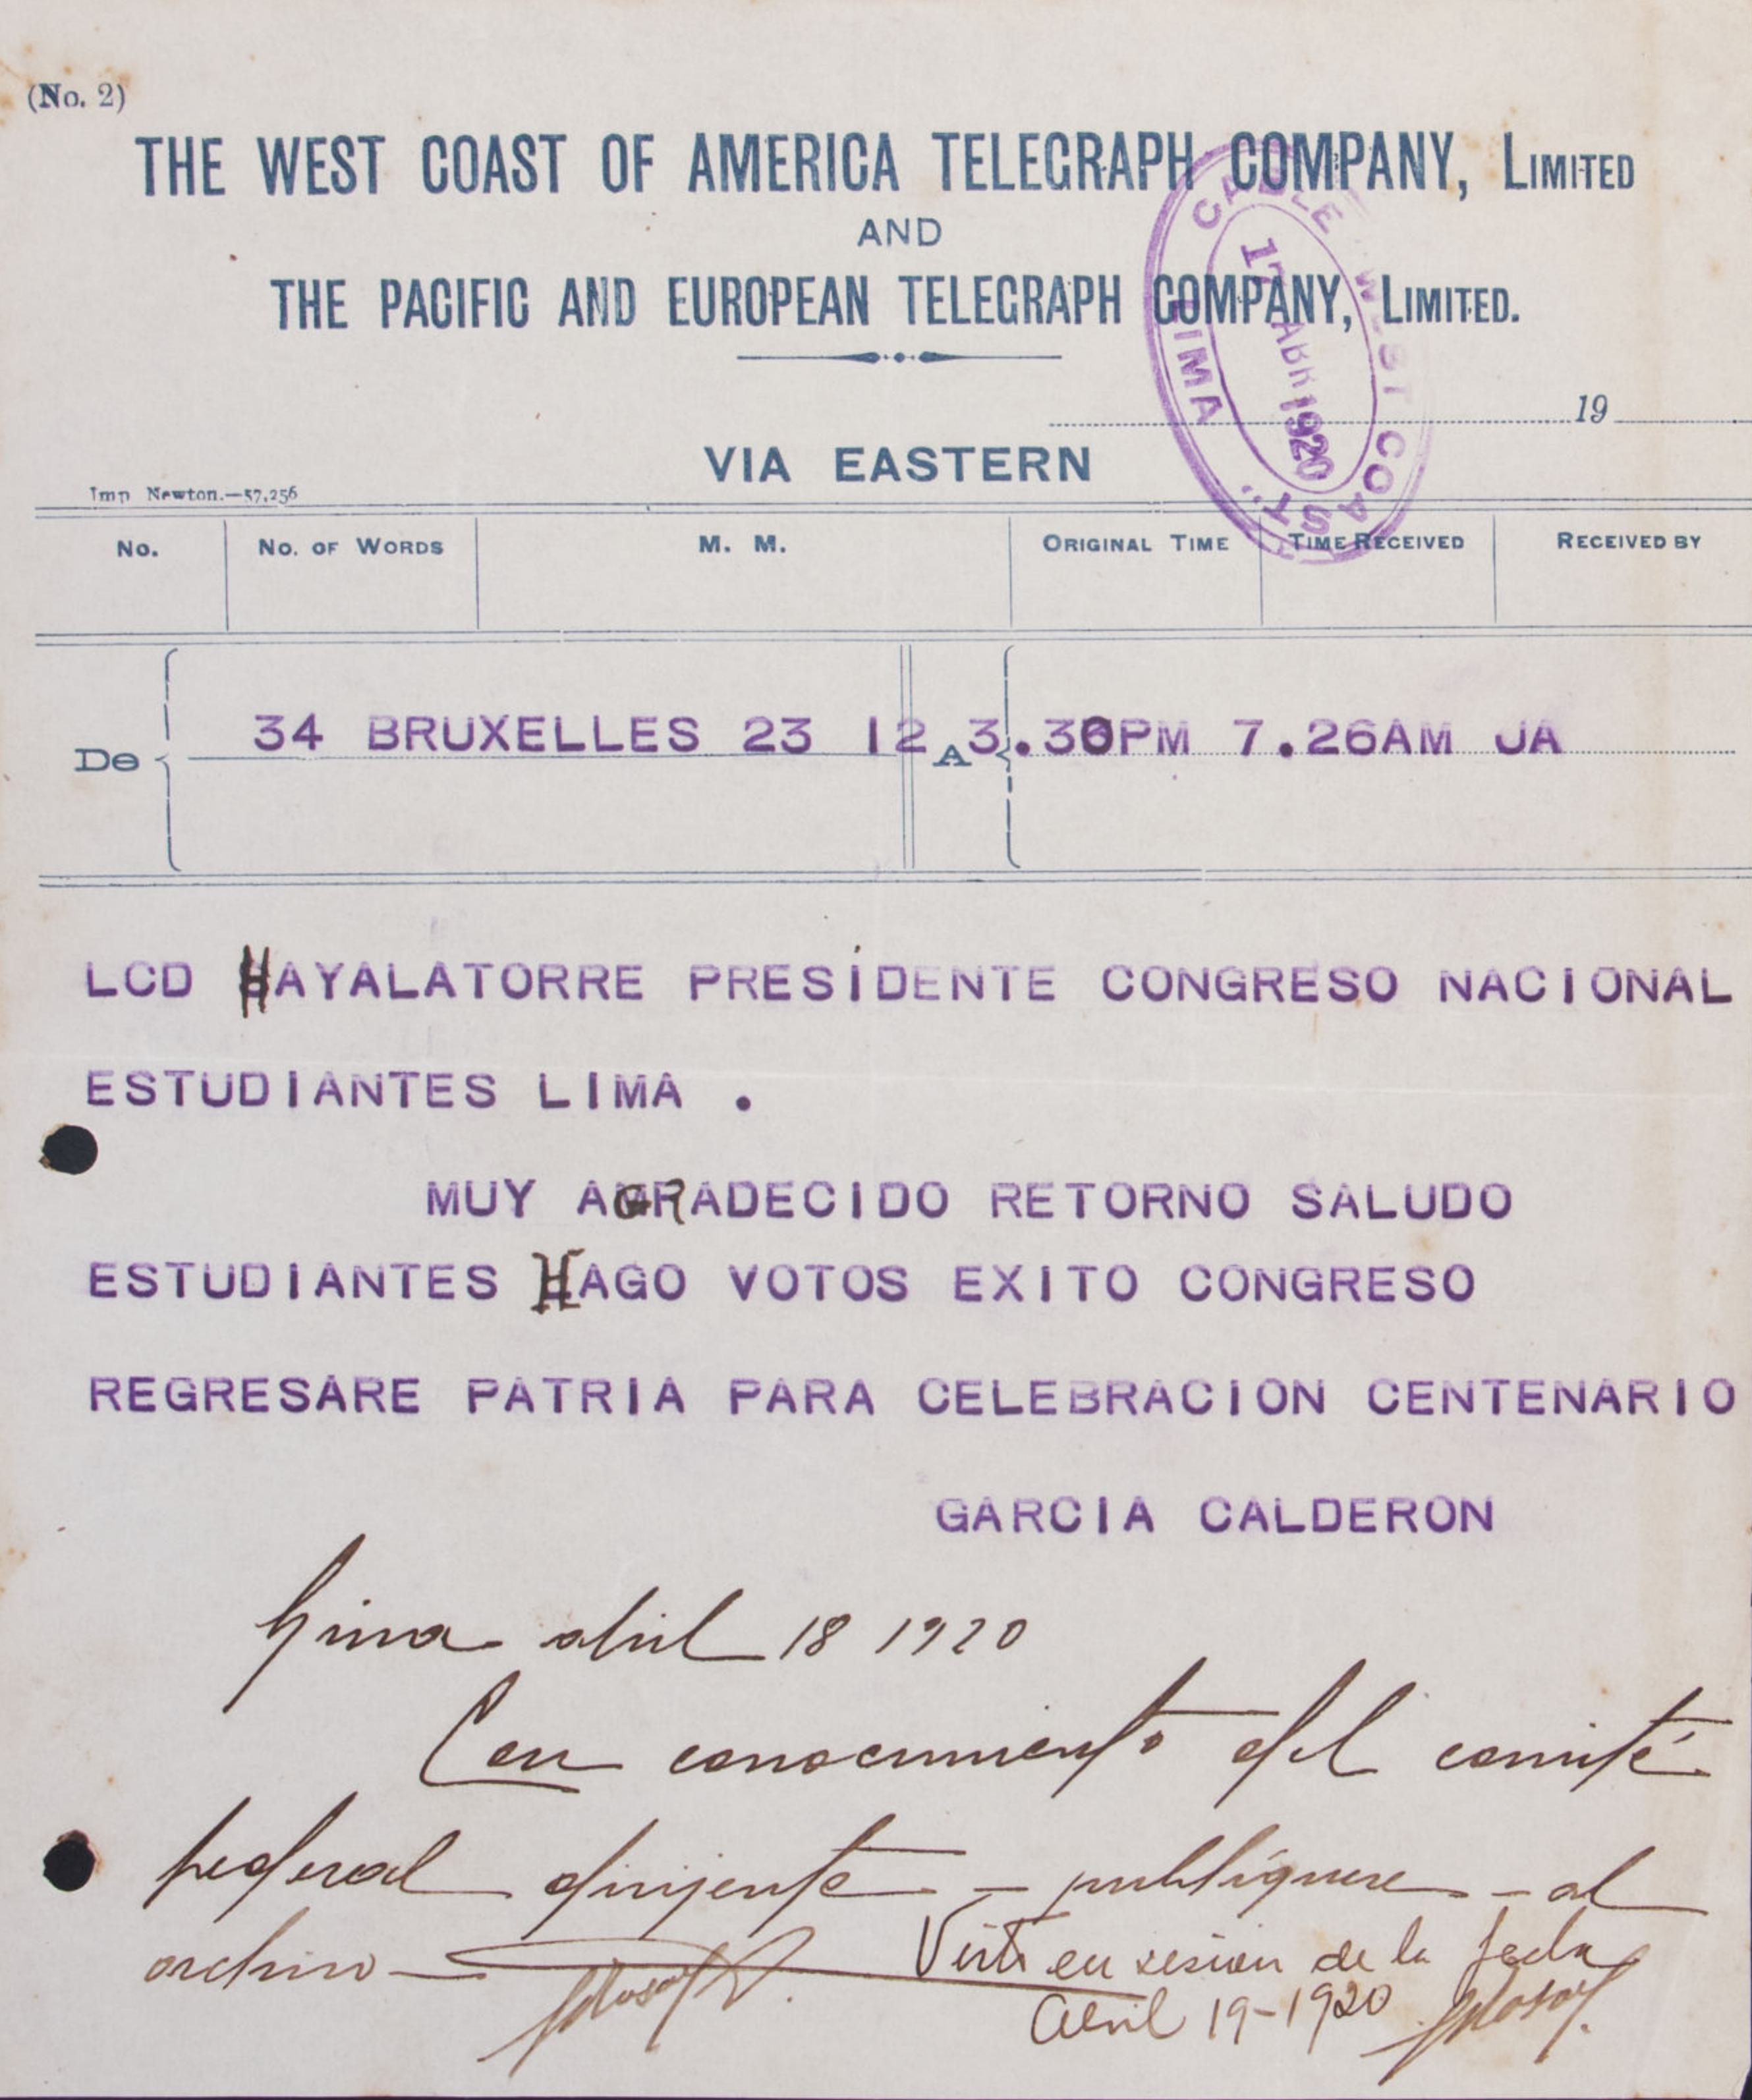 (No. 2)
THE WEST COAST OF AMERICA TELEGRAPH COMPANY, LIMITED
AND
THE PACIFIC AND EUROPEAN TELEGRAPH COMPANY, LIMITED.
CABLE WEST COAST LIMA
17 ABR 1920
19
VIA EASTERN
Imp Newton.—57,256
No. No. OF WORDS M. M. ORIGINAL TIME TIME RECEIVED RECEIVED BY
De 34 BRUXELLES 23 12 A 3.30PM 7.26AM JA
LCD HAYALATORRE PRESIDENTE CONGRESO NACIONAL
ESTUDIANTES LIMA .
MUY AGRADECIDO RETORNO SALUDO
ESTUDIANTES HAGO VOTOS EXITO CONGRESO
REGRESARE PATRIA PARA CELEBRACION CENTENARIO
GARCIA CALDERON
Lima abril 18 1920
Con conocimiento del comité
federal dirijente – publíquese – al
archivo —
Visto en sesion de la fecha
Abril 19-1920